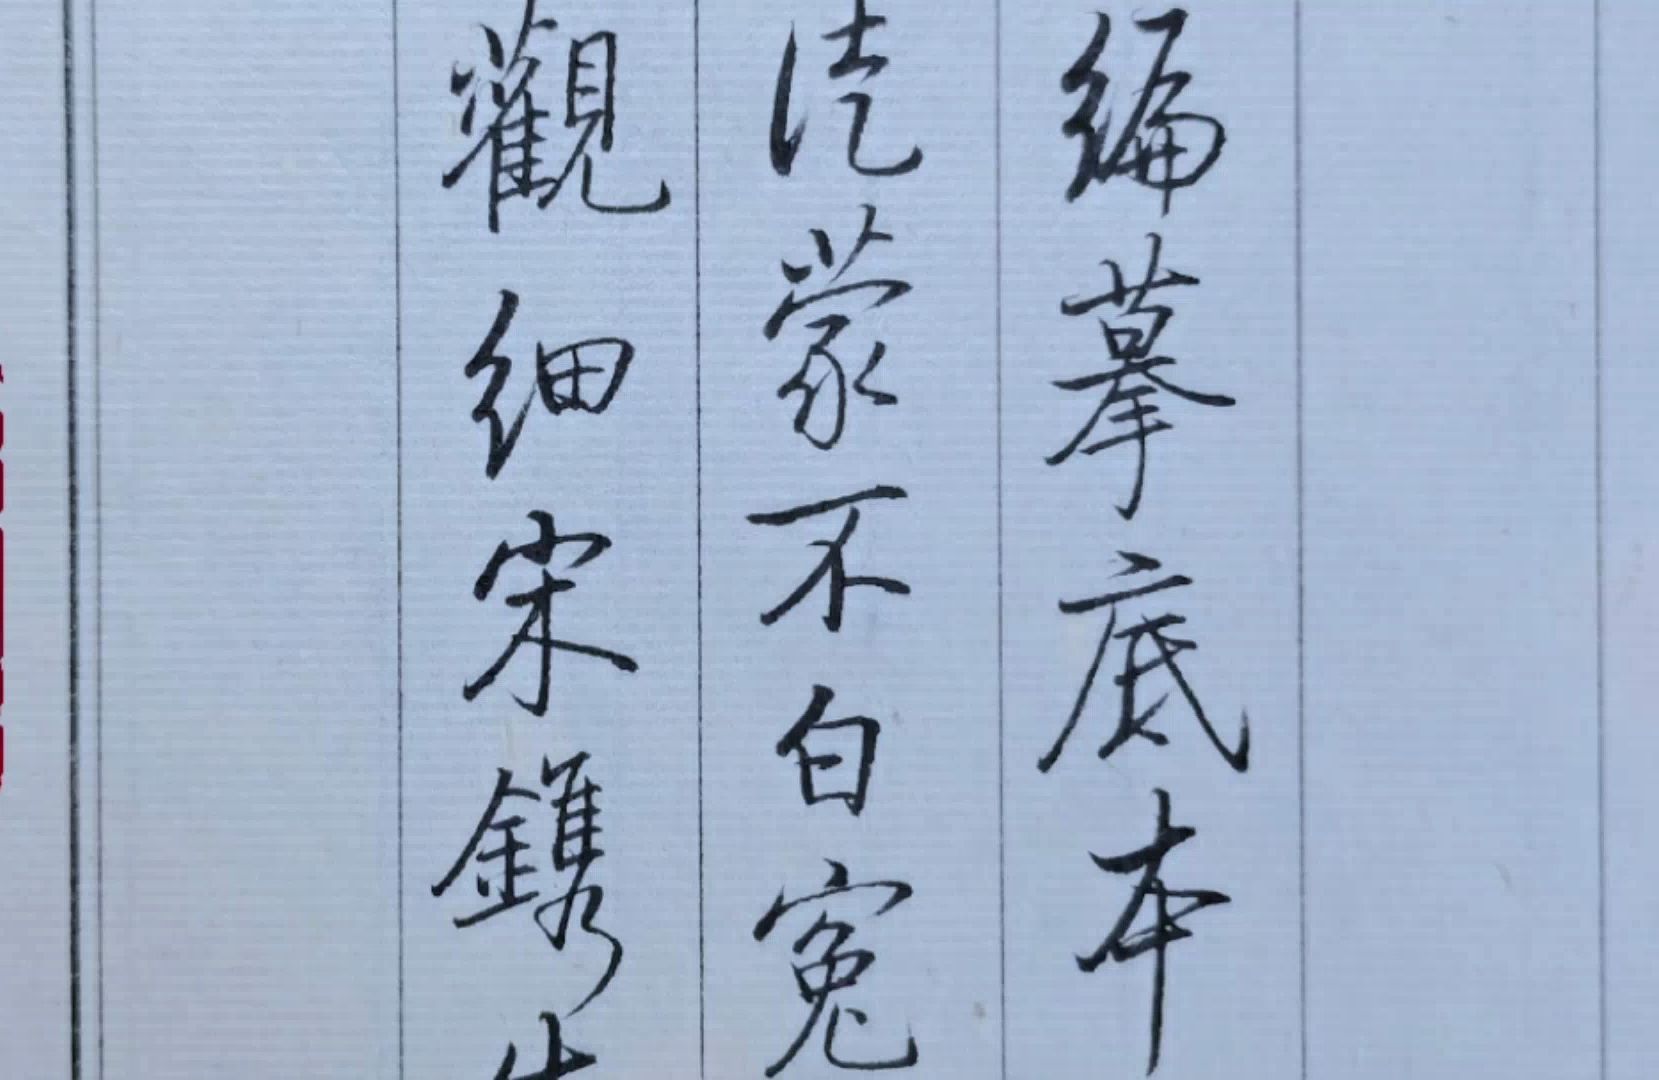 編摹底本
從蒙不白冤
觀細宋鐫